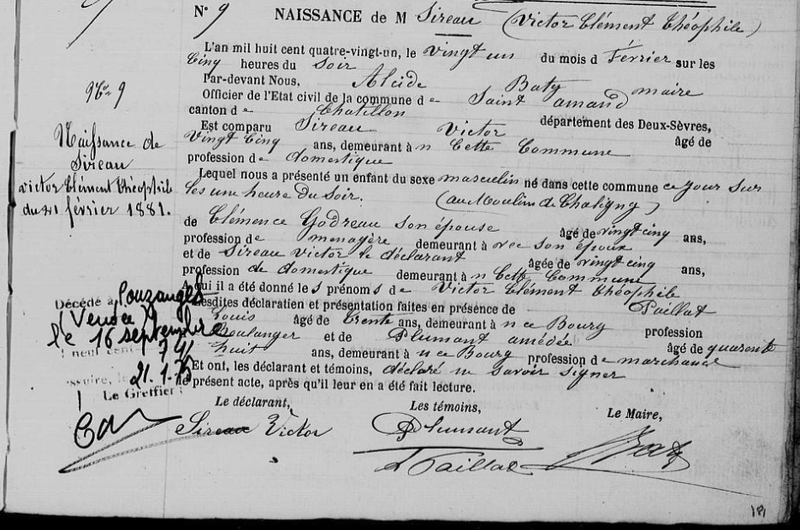 N° 9 NAISSANCE de M Sireau (Victor Clément Théophile)
L'an mil huit cent quatre-vingt-un, le vingt un du mois d Février sur les
Cinq heures du Soir
Par-devant Nous, Alcide Baty maire
Officier de l'Etat civil de la commune de Saint Amand
canton de Chatillon département des Deux-Sèvres,
Est comparu Sireau Victor âgé de
Vingt Cinq ans, demeurant à n Cette Commune
profession de domestique
Lequel nous a présenté un enfant du sexe masculin né dans cette commune ce jour sur
les une heure du Soir. (au Moulin de Chaligny)
de Clémence Godreau son épouse âgé de vingt cinq ans,
profession de menagère demeurant à vec son époux
et de Sireau Victor le déclarant âgée de vingt cinq ans,
profession de domestique demeurant à n Cette Commune
qui il a été donné le s prénom s de Victor Clément Théophile
Lesdites déclaration et présentation faites en présence de Paillat
Louis âgé de trente ans, demeurant à n ce Bourg profession
Boulanger et de Plumant amédée âgé de quarente
huit ans, demeurant à n ce Bourg profession de marchand
Et ont, les déclarant et témoins, déclaré savoir signer
le présent acte, après qu'il leur en a été fait lecture.
Le déclarant, Les témoins, Le Maire,
Sireau Victor Plumant Baty
L Paillat
N° 9
Naissance de
Sireau
victor Clément Théophile
du 21 février 1881.
Décédé à Pouzauges
(Vendée)
le 16 septembre
neuf cent
21.1.75
Le Greffier